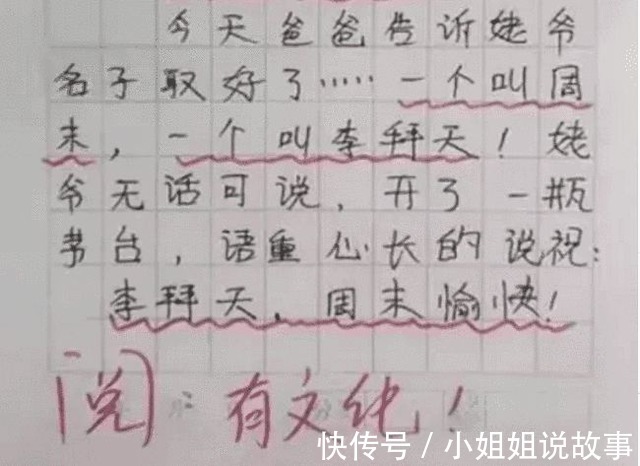 今天爸爸告诉姥爷
名子取好了……一个叫周
末，一个叫李拜天！姥
爷无话可说，开了一瓶
茅台，语重心长的说祝：
李拜天、周末愉快！
阅：有文化！
快传号 / 小姐姐说故事